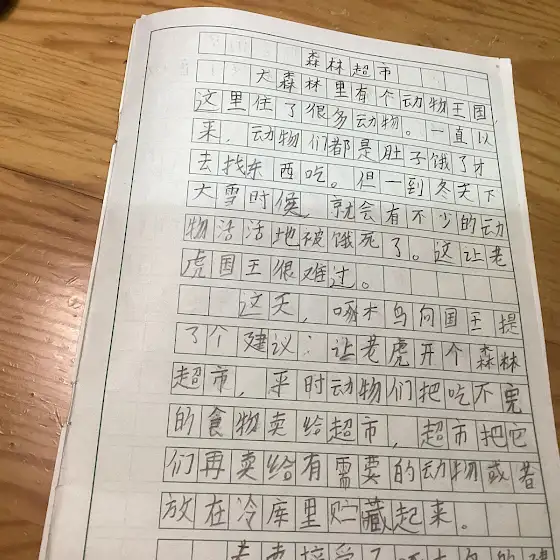 森林超市
大森林里有个动物王国,
这里住了很多动物。一直以
来,动物们都是肚子饿了才
去找东西吃。但一到冬天下
大雪时候,就会有不少的动
物活活地被饿死了。这让老
虎国王很难过。
这天,啄木鸟向国王提
了个建议:让老虎开个森林
超市,平时动物们把吃不完
的食物卖给超市,超市把它
们再卖给有需要的动物或者
放在冷库里贮藏起来。